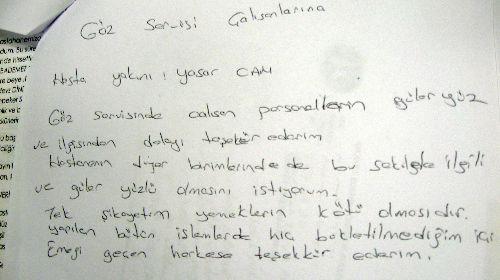 Göz Servisi Çalışanlarına
Hasta yakını : Yaşar CAM
Göz servisinde çalışan personellerin güler yüz
ve ilgisinden dolayı teşekür ederim
Hastanenin diğer birimlerinde de bu şekilde ilgili
ve güler yüzlü olmasını istiyorum.
Tek şikayetim yemeklerin kötü olmasıdır.
yapılan bütün işlemlerde hiç bekletilmediğim içi
Emeği geçen herkese teşekkür ederim.